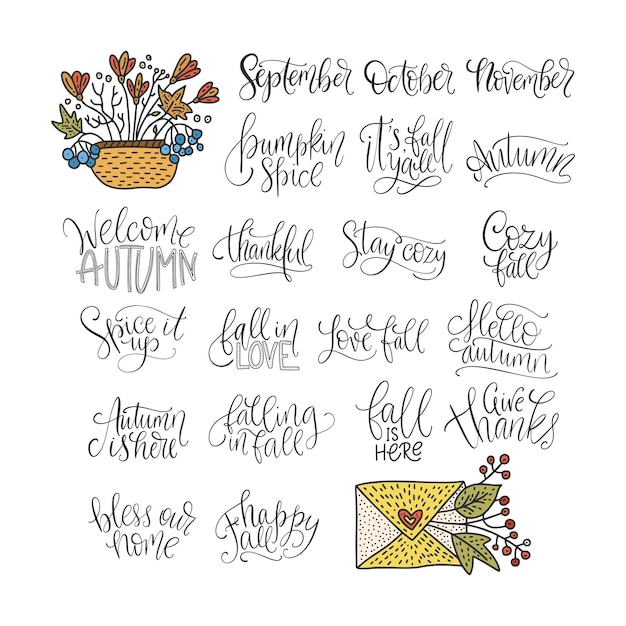 September October November
pumpkin
spice
it's fall
y'all
Autumn
Welcome
AUTUMN
thankful
Stay cozy
Cozy
fall
Spice it
up
fall in
LOVE
Love fall
Hello
autumn
Autumn
is here
falling
in fall
fall
IS
HERE
Give
thanks
bless our
home
happy
fall